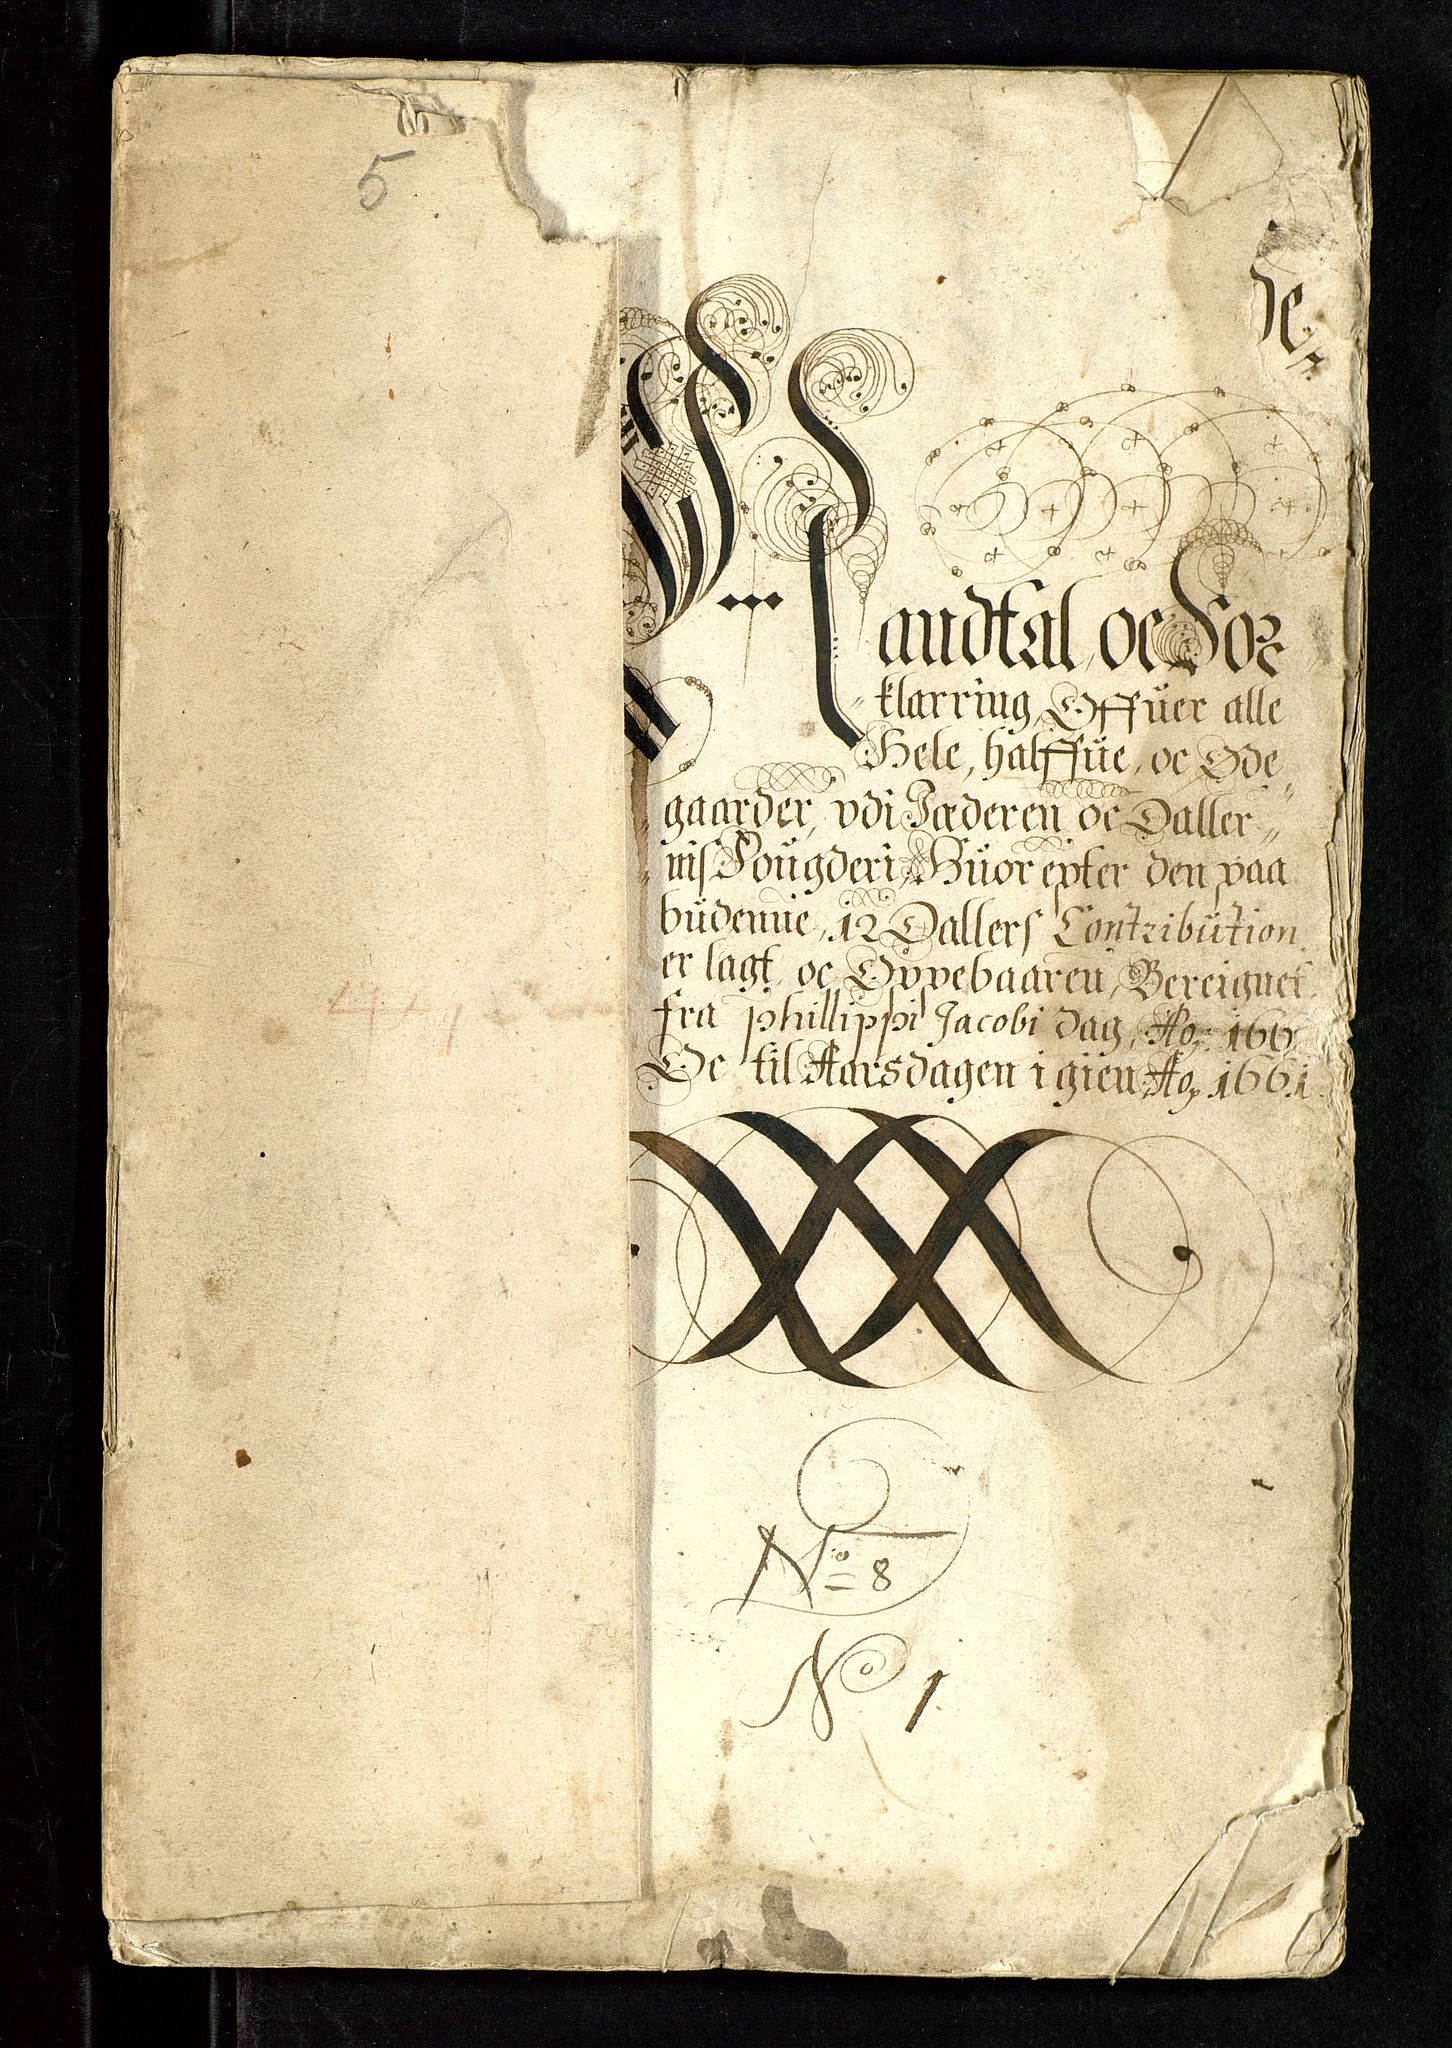 5
de
Mandtal, oc For
klarring, Offuer alle
Hele, halffue, oc Øde
gaarder, vdi Jæderen oc Daller
nis Fougderi, Huor epter den paa
budenne, 12 Dallers Contribution
er lagt, oc Oppebaaren, Bereignet
fra Phillippi Jacobi dag, Ao 166
Oc til Aarsdagen igien Ao 1661
No 8
No 1